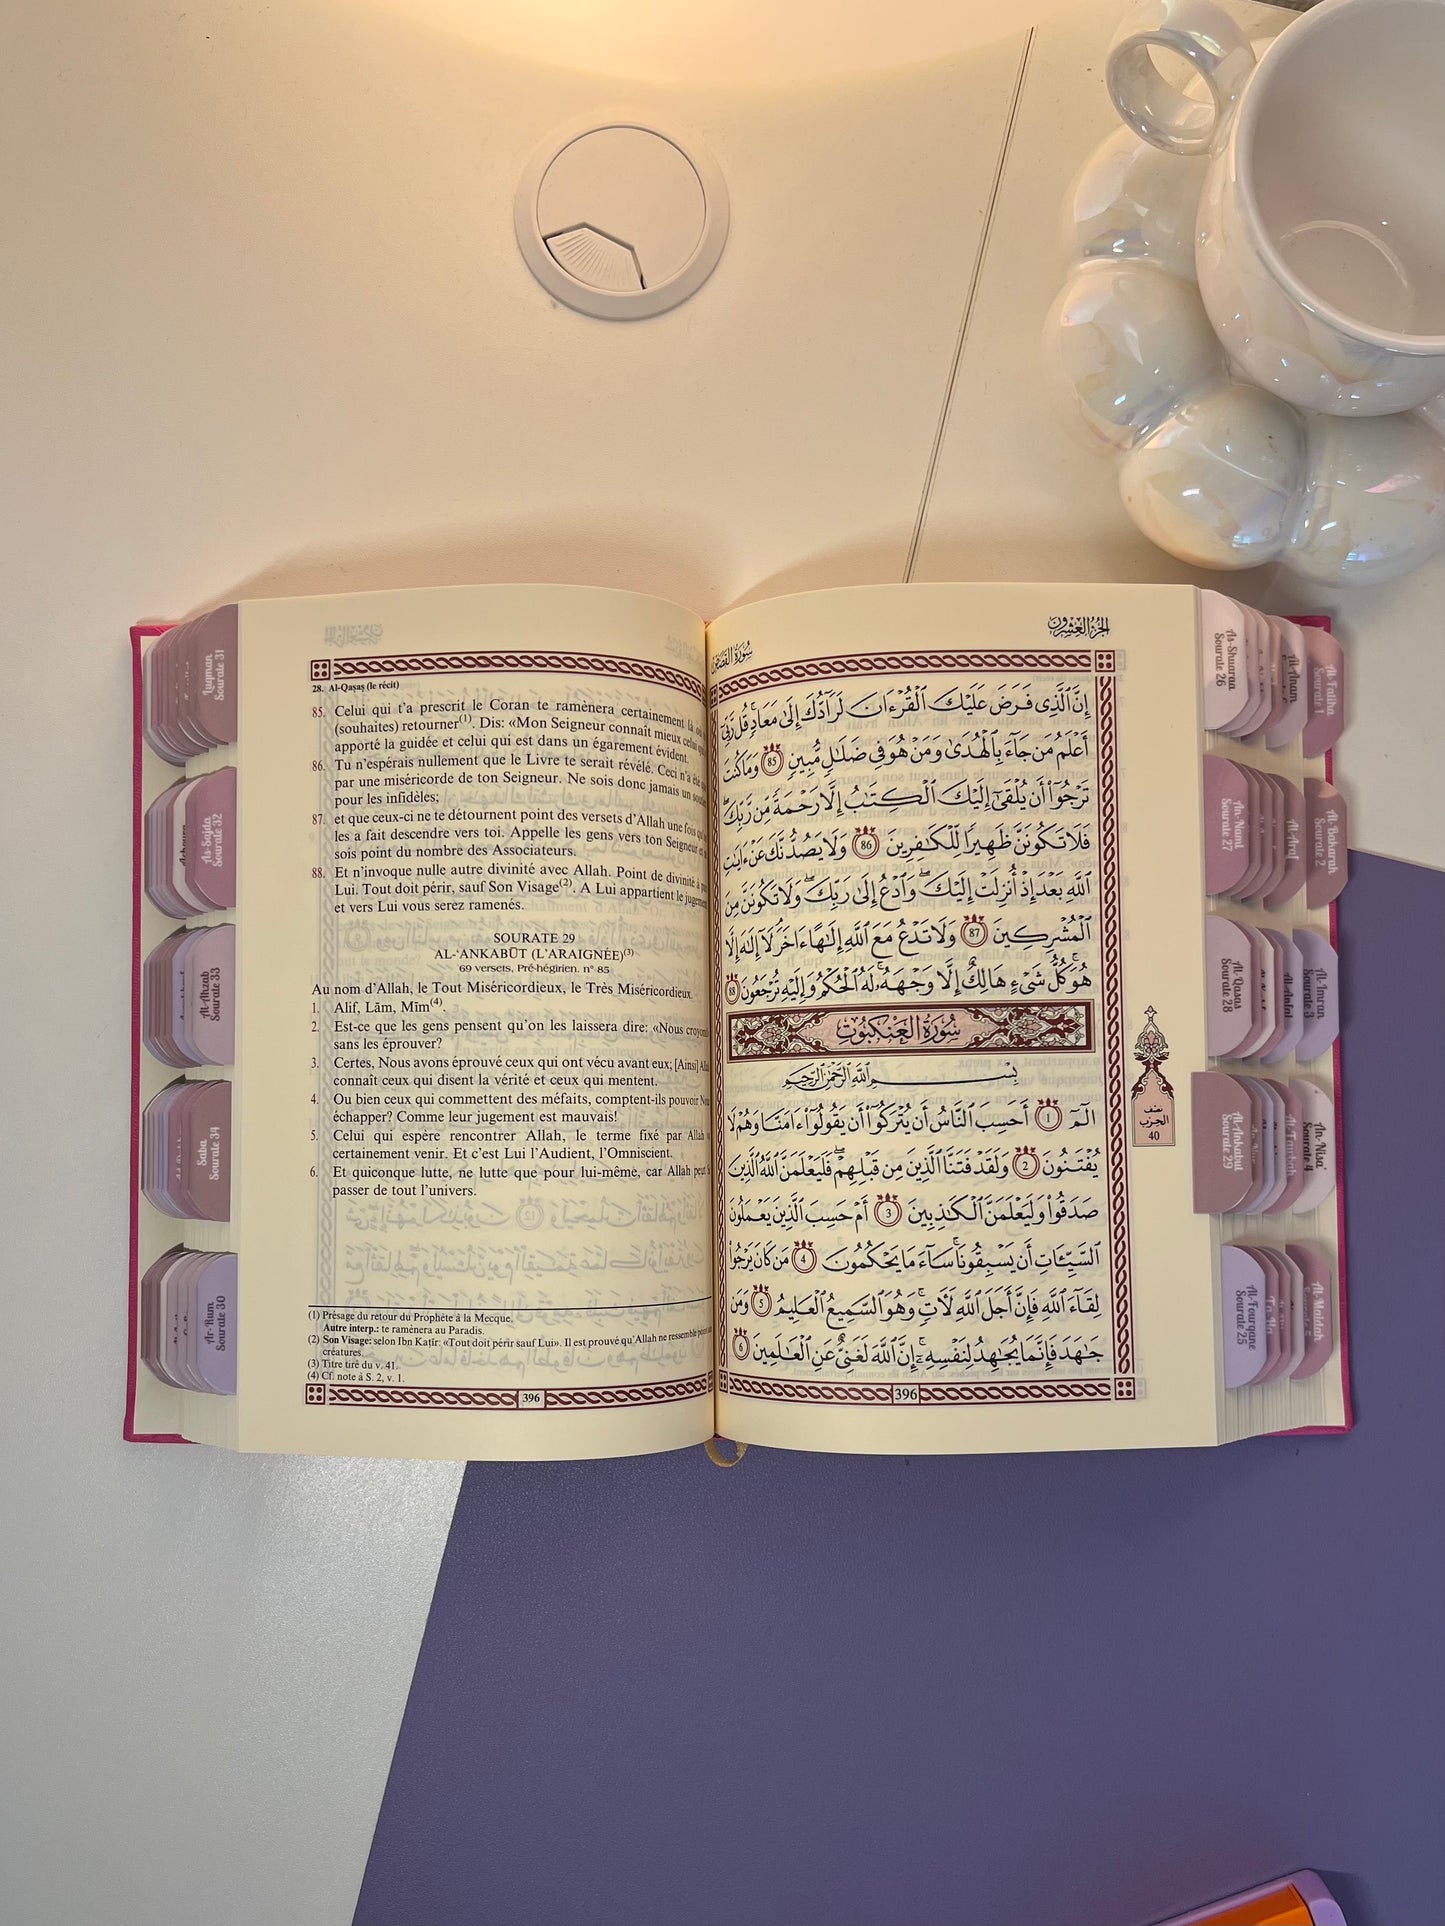 28. Al-Qaṣaṣ (le récit)
85. Celui qui t'a prescrit le Coran te ramènera certainement là où
(souhaites) retourner(1). Dis: «Mon Seigneur connaît mieux celui
apporté la guidée et celui qui est dans un égarement évident.
86. Tu n'espérais nullement que le Livre te serait révélé. Ceci n'a été
par une miséricorde de ton Seigneur. Ne sois donc jamais un
pour les infidèles;
87. et que ceux-ci ne te détournent point des versets d'Allah une fois
les a fait descendre vers toi. Appelle les gens vers ton Seigneur et
sois point du nombre des Associateurs.
88. Et n'invoque nulle autre divinité avec Allah. Point de divinité à
Lui. Tout doit périr, sauf Son Visage(2). A Lui appartient le jugement
et vers Lui vous serez ramenés.
SOURATE 29
AL-'ANKABŪT (L'ARAIGNÉE)(3)
69 versets, Pré-hégirien. n° 85
Au nom d'Allah, le Tout Miséricordieux, le Très Miséricordieux.
1. Alif, Lâm, Mîm(4).
2. Est-ce que les gens pensent qu'on les laissera dire: «Nous croyons
sans les éprouver?
3. Certes, Nous avons éprouvé ceux qui ont vécu avant eux; [Ainsi]
connaît ceux qui disent la vérité et ceux qui mentent.
4. Ou bien ceux qui commettent des méfaits, comptent-ils pouvoir
échapper? Comme leur jugement est mauvais!
5. Celui qui espère rencontrer Allah, le terme fixé par Allah
certainement venir. Et c'est Lui l'Audient, l'Omniscient.
6. Et quiconque lutte, ne lutte que pour lui-même, car Allah peut
passer de tout l'univers.
(1) Présage du retour du Prophète à la Mecque.
Autre interp.: te ramènera au Paradis.
(2) Son Visage: selon Ibn Kaṭîr: «Tout doit périr sauf Lui». Il est prouvé qu'Allah ne ressemble
créatures.
(3) Titre tiré du v. 41.
(4) Cf. note à S. 2, v. 1.
396
الجزء العشرون
سورة القصص
إِنَّ ٱلَّذِى فَرَضَ عَلَيْكَ ٱلْقُرْءَانَ لَرَآدُّكَ إِلَىٰ مَعَادٍ ۚ قُل رَّبِّىٓ
أَعْلَمُ مَن جَآءَ بِٱلْهُدَىٰ وَمَنْ هُوَ فِى ضَلَـٰلٍ مُّبِينٍ 85 وَمَا كُنتَ
تَرْجُوٓا۟ أَن يُلْقَىٰٓ إِلَيْكَ ٱلْكِتَـٰبُ إِلَّا رَحْمَةً مِّن رَّبِّكَ ۖ
فَلَا تَكُونَنَّ ظَهِيرًا لِّلْكَـٰفِرِينَ 86 وَلَا يَصُدُّنَّكَ عَنْ ءَايَـٰتِ
ٱللَّهِ بَعْدَ إِذْ أُنزِلَتْ إِلَيْكَ ۖ وَٱدْعُ إِلَىٰ رَبِّكَ ۖ وَلَا تَكُونَنَّ مِنَ
ٱلْمُشْرِكِينَ 87 وَلَا تَدْعُ مَعَ ٱللَّهِ إِلَـٰهًا ءَاخَرَ ۘ لَآ إِلَـٰهَ إِلَّا
هُوَ ۚ كُلُّ شَىْءٍ هَالِكٌ إِلَّا وَجْهَهُۥ ۚ لَهُ ٱلْحُكْمُ وَإِلَيْهِ تُرْجَعُونَ 88
سُورَةُ الْعَنْكَبُوتِ
بِسْمِ ٱللَّهِ ٱلرَّحْمَـٰنِ ٱلرَّحِيمِ
الٓمٓ 1 أَحَسِبَ ٱلنَّاسُ أَن يُتْرَكُوٓا۟ أَن يَقُولُوٓا۟ ءَامَنَّا وَهُمْ لَا
يُفْتَنُونَ 2 وَلَقَدْ فَتَنَّا ٱلَّذِينَ مِن قَبْلِهِمْ ۖ فَلَيَعْلَمَنَّ ٱللَّهُ ٱلَّذِينَ
صَدَقُوا۟ وَلَيَعْلَمَنَّ ٱلْكَـٰذِبِينَ 3 أَمْ حَسِبَ ٱلَّذِينَ يَعْمَلُونَ
ٱلسَّيِّـَٔاتِ أَن يَسْبِقُونَا ۚ سَآءَ مَا يَحْكُمُونَ 4 مَن كَانَ يَرْجُوا۟
لِقَآءَ ٱللَّهِ فَإِنَّ أَجَلَ ٱللَّهِ لَـَٔاتٍ ۚ وَهُوَ ٱلسَّمِيعُ ٱلْعَلِيمُ 5 وَمَن
جَـٰهَدَ فَإِنَّمَا يُجَـٰهِدُ لِنَفْسِهِۦٓ ۚ إِنَّ ٱللَّهَ لَغَنِىٌّ عَنِ ٱلْعَـٰلَمِينَ 6
396
نصف
الحزب
40
Luqman
Sourate 31
As-Sajda
Sourate 32
Al-Ahzab
Sourate 33
Saba
Sourate 34
Ar-Rum
Sourate 30
As-Shuaraa
Sourate 26
Al-Anam
Al-Fatiha
Sourate 1
An-Naml
Sourate 27
Al-Araf
Al-Baqarah
Sourate 2
Al-Qasas
Sourate 28
Al-Anfal
Al-Imran
Sourate 3
Al-Ankabut
Sourate 29
At-Tawbah
An-Nisa'
Sourate 4
Al-Fourqane
Sourate 25
Al-Maidah